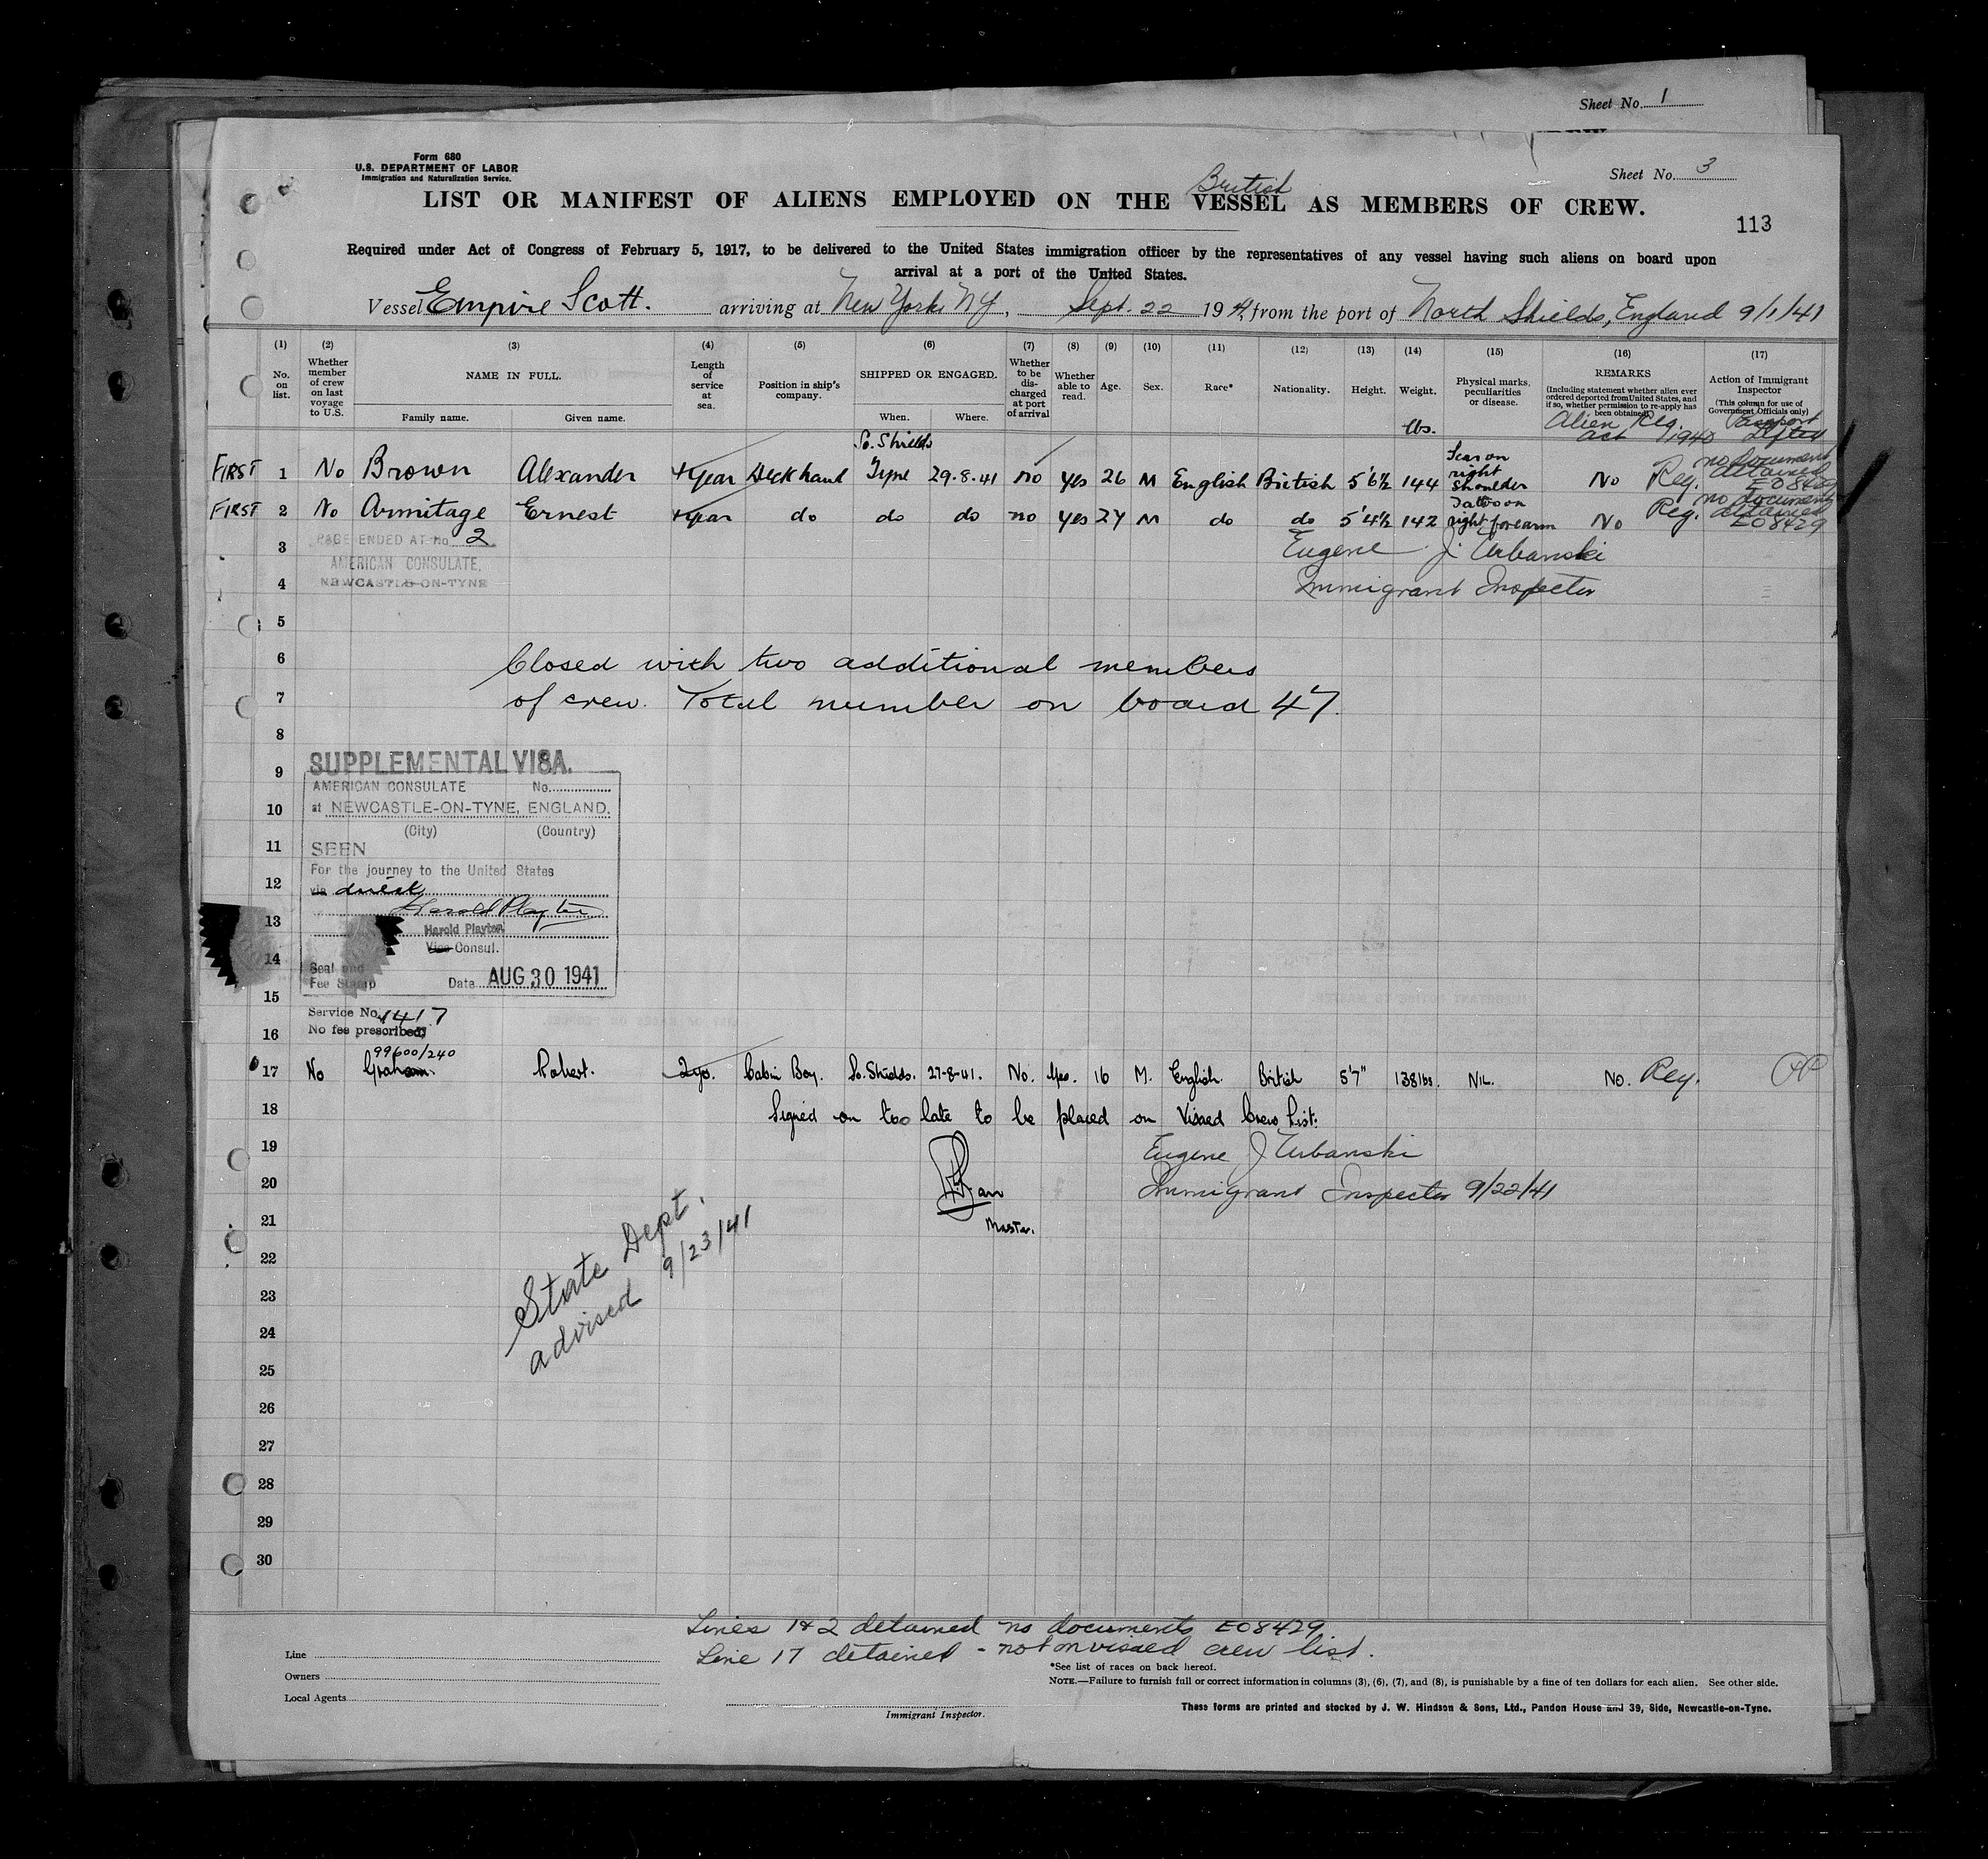 Sheet No. 1
Form 680
U.S. DEPARTMENT OF LABOR
Immigration and Naturalization Service.
Sheet No. 3
British
LIST OR MANIFEST OF ALIENS EMPLOYED ON THE VESSEL AS MEMBERS OF CREW.
113
Required under Act of Congress of February 5, 1917, to be delivered to the United States immigration officer by the representatives of any vessel having such aliens on board upon
arrival at a port of the United States.
Vessel Empire Scott. arriving at New York NY, Sept. 22 1941, from the port of North Shields, England 9/1/41
(1) (2) (3) (4) (5) (6) (7) (8) (9) (10) (11) (12) (13) (14) (15) (16) (17)
No. on list.
Whether member of crew on last voyage to U.S.
NAME IN FULL.
Family name. Given name.
Length of service at sea.
Position in ship's company.
SHIPPED OR ENGAGED.
When. Where.
Whether to be discharged at port of arrival
Whether able to read.
Age. Sex. Race* Nationality. Height. Weight.
Physical marks, peculiarities or disease.
REMARKS
(Including statement whether alien ever ordered deported from United States, and if so, whether permission to re-apply has been obtained)
Action of Immigrant Inspector
(This column for use of Government Officials only)
lbs. Alien Reg. Act 1940 Passport Lifted
So. Shields
FIRST 1 No Brown Alexander year Deck hand Tyne 29.8.41 no yes 26 M English British 5'6½ 144 Scar on right shoulder No Reg. no document detained E08429
FIRST 2 No Armitage Ernest year do do do no yes 24 M do do 5'4½ 142 Tattoo on right forearm No Reg. no document detained E08429
3 PAGE ENDED AT No. 2 Eugene J. Urbanski
AMERICAN CONSULATE,
4 NEWCASTLE-ON-TYNE Immigrant Inspector
5
6 Closed with two additional members
7 of crew. Total number on board 47.
8
9 SUPPLEMENTAL VISA.
AMERICAN CONSULATE No.
10 at NEWCASTLE-ON-TYNE, ENGLAND.
(City) (Country)
11 SEEN
For the journey to the United States
12 via direct
13 Harold Playter
Harold Playter.
Vice Consul.
14 Seal and
Fee Stamp Date AUG 30 1941
15
Service No. 1417
16 No fee prescribed;
99600/240
17 No Graham. Robert. 2 yrs. Cabin Boy. So. Shields. 27-8-41. No. Yes. 16 M. English. British 5'7" 138 lbs. NIL. No. Reg.
18 Signed on too late to be placed on Visaed Crew List.
19 Eugene J Urbanski
20 Immigrant Inspector 9/22/41
21 Master.
22
State Dept.
advised 9/23/41
23
24
25
26
27
28
29
30
Lines 1 & 2 detained no documents E08429
Line 17 detained - not on visaed crew list.
Line
Owners
Local Agents
Immigrant Inspector.
*See list of races on back hereof.
NOTE.—Failure to furnish full or correct information in columns (3), (6), (7), and (8), is punishable by a fine of ten dollars for each alien. See other side.
These forms are printed and stocked by J. W. Hindson & Sons, Ltd., Pandon House and 39, Side, Newcastle-on-Tyne.